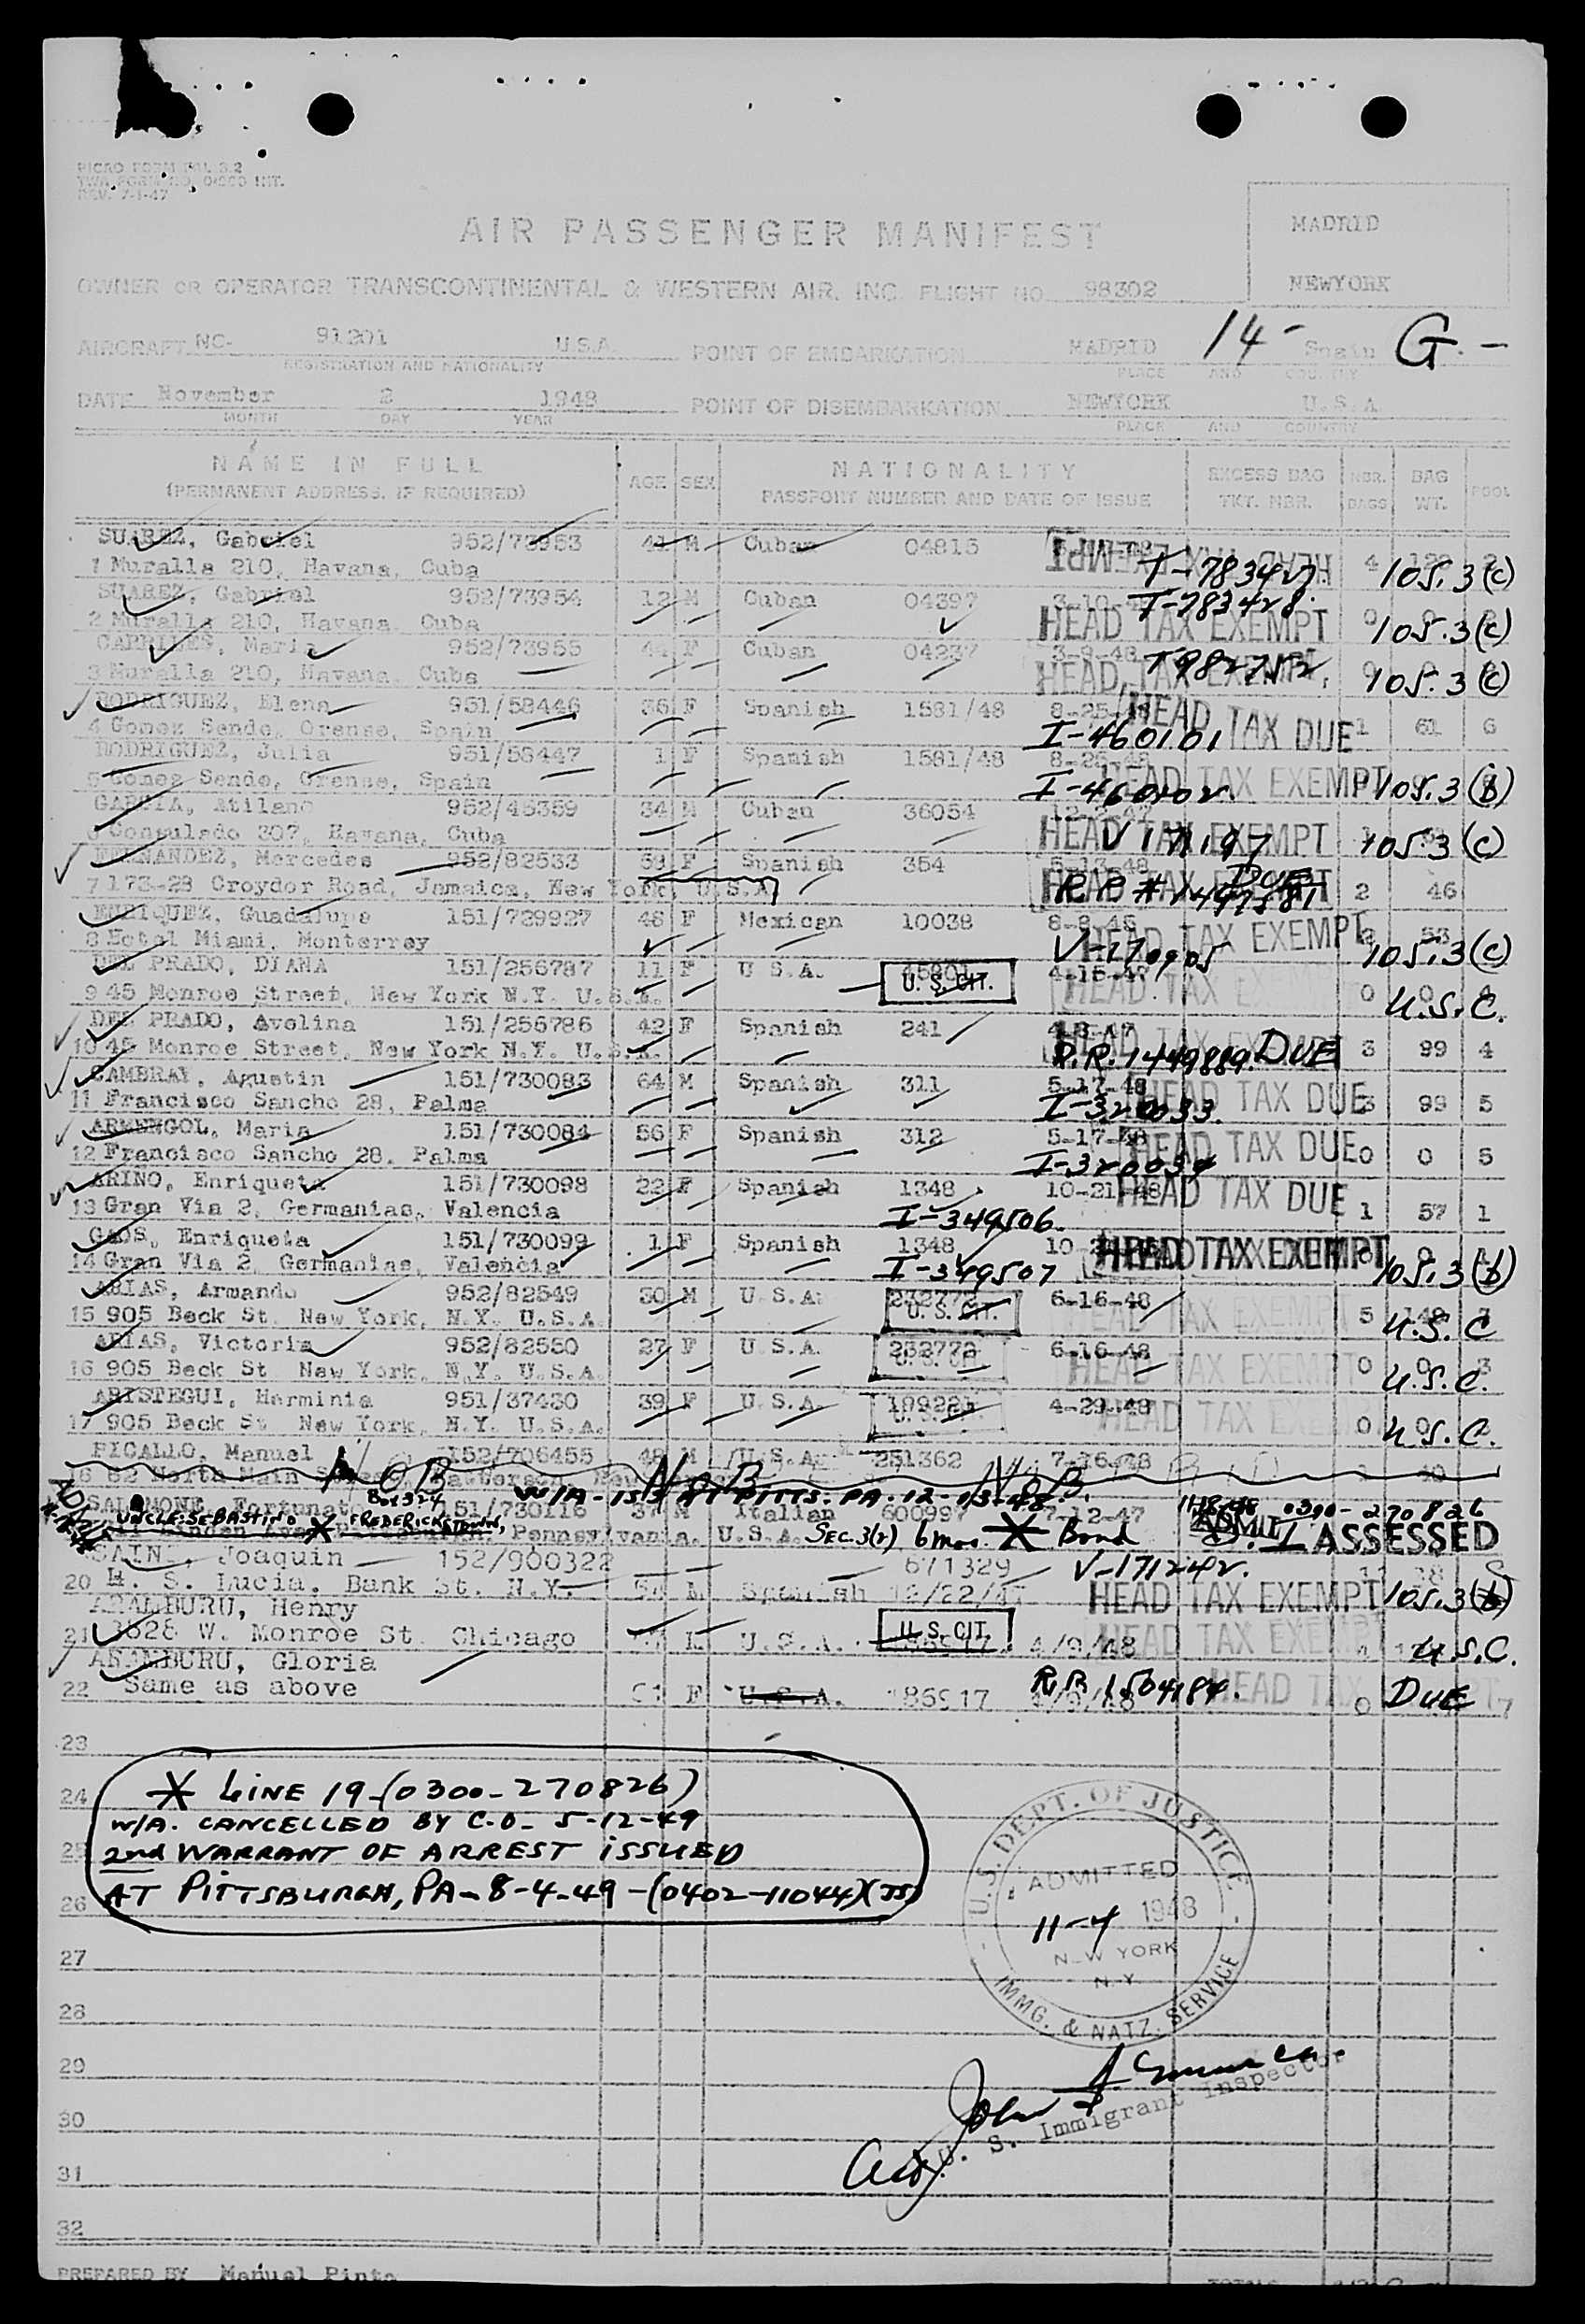 PICAO FORM
REV. 7-1-47
AIR PASSENGER MANIFEST
MADRID
NEWYORK
OWNER OR OPERATOR TRANSCONTINENTAL & WESTERN AIR, INC. FLIGHT NO. 98302
AIRCRAFT NC- 91201 U.S.A. POINT OF EMBARKATION MADRID 14- Spain G.-
REGISTRATION AND NATIONALITY PLACE AND COUNTRY
DATE November 2 1948 POINT OF DISEMBARKATION NEWYORK U.S.A
MONTH DAY YEAR PLACE AND COUNTRY
NAME IN FULL AGE SEX NATIONALITY EXCESS BAG NBR. BAG POOL
(PERMANENT ADDRESS, IF REQUIRED) PASSPORT NUMBER AND DATE OF ISSUE TKT. NBR. BAGS WT.
SUAREZ, Gabriel 952/73953 41 M Cuban 04815 HEAD TAX EXEMPT 4
1 Muralla 210, Havana, Cuba 105.3(c)
SUAREZ, Gabriel 952/73954 12 M Cuban 04397 3-10-48 T-783428.
2 Muralla 210, Havana, Cuba HEAD TAX EXEMPT 0 105.3(c)
CARRILES, Maria 952/73955 44 F Cuban 04237 3-9-48
3 Muralla 210, Havana, Cuba HEAD TAX EXEMPT 105.3(c)
RODRIGUEZ, Elena 951/58446 36 F Spanish 1581/48 8-25-48 HEAD TAX DUE 1 61 6
4 Gomez Sende, Orense, Spain I-460101
RODRIGUEZ, Julia 951/58447 1 F Spanish 1581/48 8-25-48
5 Gomez Sende, Orense, Spain I-460102 HEAD TAX EXEMPT 105.3(b)
GARCIA, Atilano 952/45359 34 M Cuban 36054
6 Consulado 207, Havana, Cuba HEAD TAX EXEMPT 105.3(c)
FERNANDEZ, Mercedes 952/82533 58 F Spanish 354 5-13-48
7 173-28 Croydor Road, Jamaica, New York, U.S.A. DUE 2 46
ENRIQUEZ, Guadalupe 151/729927 46 F Mexican 10038 8-8-48
8 Hotel Miami, Monterrey HEAD TAX EXEMPT 105.3(c)
DEL PRADO, DIANA 151/256787 11 F U.S.A. U. S. CIT. 4-15-47
9 45 Monroe Street, New York N.Y. U.S.A. HEAD TAX 0 0 4 U.S.C.
DEL PRADO, Avelina 151/256786 42 F Spanish 241
10 45 Monroe Street, New York N.Y. U.S.A. R.R. 1449889. DUE 3 99 4
CAMBRAY, Agustin 151/730083 64 M Spanish 311 5-17-48
11 Francisco Sancho 28, Palma I-320033. HEAD TAX DUE 3 99 5
ARMENGOL, Maria 151/730084 56 F Spanish 312 5-17-48
12 Francisco Sancho 28, Palma I-320034 HEAD TAX DUE 0 0 5
ARINO, Enriqueta 151/730098 22 F Spanish 1348 10-21-48
13 Gran Via 2, Germanias, Valencia I-349506. HEAD TAX DUE 1 57 1
GAOS, Enriqueta 151/730099 1 F Spanish 1348
14 Gran Via 2, Germanias, Valencia I-349507 HEAD TAX EXEMPT 105.3(b)
ARIAS, Armando 952/82549 30 M U.S.A. U. S. CIT. 6-16-48
15 905 Beck St. New York, N.Y. U.S.A. HEAD TAX EXEMPT 5 U.S.C
ARIAS, Victoria 952/82550 27 F U.S.A. 232772 6-16-48
16 905 Beck St New York, N.Y. U.S.A. HEAD TAX EXEMPT 0 U.S.C.
ARISTEGUI, Herminia 951/37430 39 F U.S.A. 4-29-48
17 905 Beck St New York, N.Y. U.S.A. HEAD TAX 0 U.S.C.
PICALLO, Manuel 152/706455 48 M U.S.A. 251362 7-16-48
18 82 North Main Street, N O B N O B N O B
SALAMONE, Fortunato 151/730116 37 M Italian 600997 7-12-47
W/A-ISS AT PITTS. PA. 12-13-48. 0300-270826
UNCLE: SEBASTINO Box 324 FREDERICKTOWN, Pennsylvania, U.S.A. SEC.3(2) 6 mos. Bond ASSESSED
SAIN, Joaquin 152/900322 671329 V-171242.
20 H. S. Lucia, Bank St. N.Y. M Spanish 12/22/47 HEAD TAX EXEMPT 105.3(b)
ARAMBURU, Henry
21 3528 W. Monroe St. Chicago U.S.A. U. S. CIT. 4/9/48 HEAD TAX EXEMPT U.S.C.
ARAMBURU, Gloria
22 Same as above F U.S.A. 186917 HEAD TAX 0 DUE 7
23
24 * LINE 19-(0300-270826)
W/A. CANCELLED BY C.O- 5-12-49
25 2nd WARRANT OF ARREST ISSUED
26 AT PITTSBURGH, PA-8-4-49-(0402-11044)(JS)
U.S. DEPT. OF JUSTICE
ADMITTED
11-4 1948
NEW YORK
N.Y.
IMMG. & NATZ. SERVICE
27
28
29
30
U. S. Immigrant Inspector
31
32
PREPARED BY Manuel Pinta